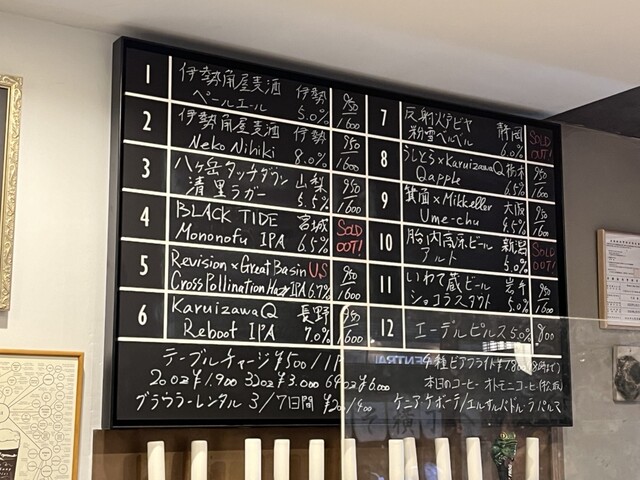 1 伊勢角屋麦酒 伊勢
ペールエール 5.0% 950/1600
2 伊勢角屋麦酒 伊勢
Neko Nihiki 8.0% 950/1600
3 八ヶ岳タッチダウン 山梨
清里ラガー 5.5% 950/1600
4 BLACK TIDE 宮城
Mononofu IPA 6.5% SOLD OUT!
5 Revision×Great Basin US
Cross Pollination Hazy IPA 6.7% 950/1600
6 Karuizawa Q 長野
Reboot IPA 7.0% 950/1600
7 反射炉ビヤ 静岡
粉雪ベルベル 6.0% SOLD OUT!
8 うしとら×Karuizawa Q 栃木
Qapple 6.5% 950/1600
9 箕面×Mikkeller 大阪
Ume-chu 4.5% 950/1600
10 胎内高原ビール 新潟
アルト 5.0% SOLD OUT!
11 いわて蔵ビール 岩手
ショコラスタウト 5.0% 950/1600
12 エーデルピルス 5.0% 800
テーブルチャージ ¥500/1人
20oz ¥1.900 32oz ¥3.000 64oz ¥6.000
グラウラーレンタル 3/7日間 ¥200/400
4種ビアフライト ¥1800(18時まで)
本日のコーヒー オトモニコーヒー(松阪)